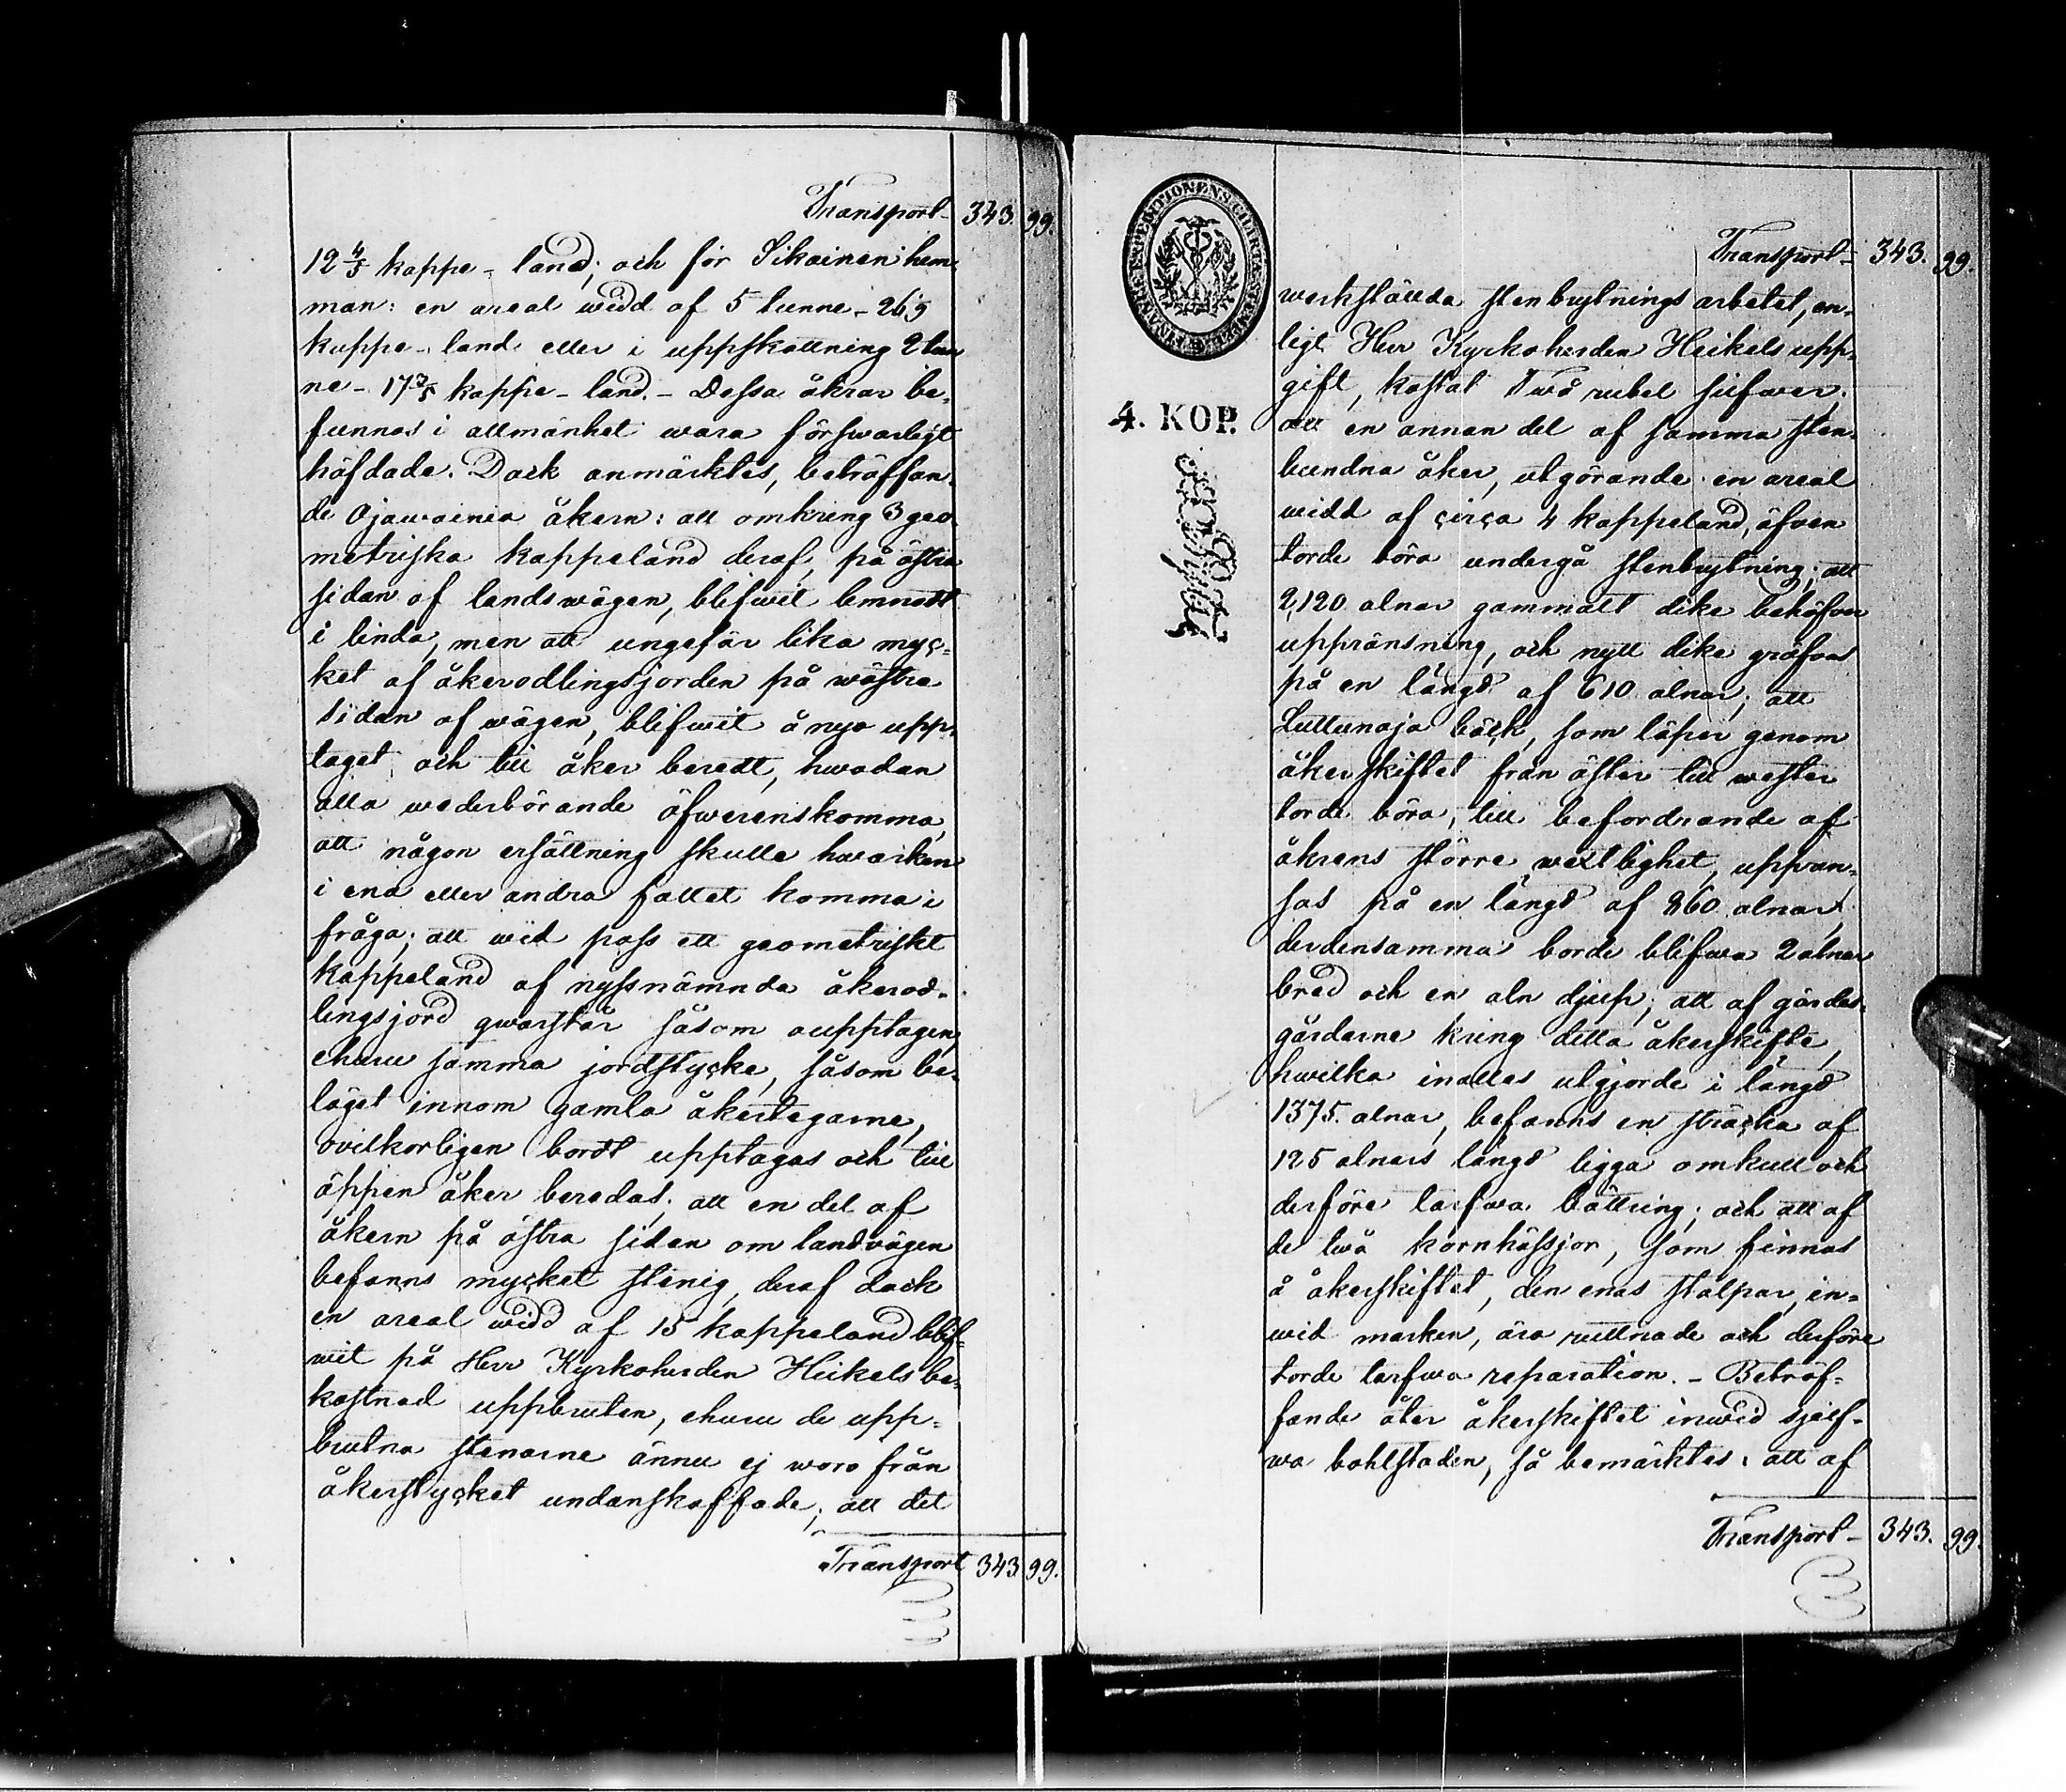 Transport 343. 99.
12 4/5 kappe-land; och för Sikainen hem-
man: en areal widd af 5 tunne-26,9
kappe-land eller i uppskattning 2 tun
ne-17 3/5 kappe-land.- Dessa åkrar be-
funnos i allmänhet wara förswarligt
häfdade. Dock anmärktes, beträffan-
de Ojawainia åkern: att omkring 3 geo
metriska kappeland deraf, på östra
sidan af landswägen, blifwit lemnadt
i linda, men att ungefär lika myc-
ket af åkerodlingsjorden på wästra
sidan af wägen, blifwit å nyo upp-
taget och till åker beredt, hwadan
alla wederbörande öfwerenskomma,
att någon ersättning skulle hwarken
i ena eller andra fallet komma i
fråga; att wid pass ett geometriskt
kappeland af nyssnämnda åkerod-
lingsjord qwarstår såsom oupptagen,
ehuru samma jordstycke, såsom be-
läget innom gamla åkertegarne,
ovilkorligen bordt upptagas och till
öppen åker beredas; att en del af
åkern på östra sidan om landvägen
befanns mycket stenig, deraf dock
en areal widd af 15 kappeland blif-
wit på Herr Kyrkoherden Heikels be-
kostnad uppbruten, ehuru de upp-
brutna stenarne ännu ej woro från
åkerstycket undanskaffade; att det
Transport 343 99.
FINANCE EXPEDITIONENS CHARTÆ STEMPEL
4. KOP.
Transport- 343. 99.
werkställda stenbrytnings arbetet, en-
ligt Herr Kyrkoherden Heikels upp-
gift, kostat Två rubel silfwer;
att en annan del af samma sten-
bundna åker, utgörande en areal
widd af circa 4 kappeland, äfven
torde böra undergå stenbrytning; att
2,120 alnar gammalt dike behöfver
uppränsning, och nytt dike gräfvas
på en längd af 610 alnar; att
Luttunoja bäck, som löper genom
åkerskiftet från öster till wester
torde böra, till befordrande af
åkrens större wextlighet, uppran-
sas på en längd af 860 alnar,
der densamma borde blifwa 2 alnar
bred och en aln djup; att af gärdes-
gårdarne kring detta åkerskifte,
hwilka inalles utgjorde i längd
1375. alnar, befanns en sträcka af
125 alnars längd ligga omkull och
derföre tarfwa bättring; och att af
de twå kornhässjor, som finnas
å åkerskiftet, den enas stolpar, in-
wid marken, äro ruttnade och derföre
torde tarfwa reparation. - Beträf-
fande åter åkerskiftet inwid sjelf-
wa bohlstaden, så bemärktes: att af
Transport- 343. 99.